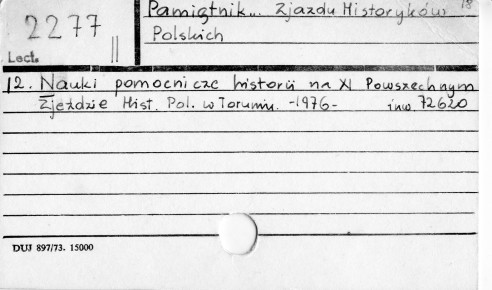 18
Pamiętnik... Zjazdu Historyków
2277
II
Polskich
Lect.
12. Nauki pomocnicze historii na XI Powszechnym
Zjeździe Hist. Pol. w Toruniu. -1976- inw. 72620
DUJ 897/73. 15000